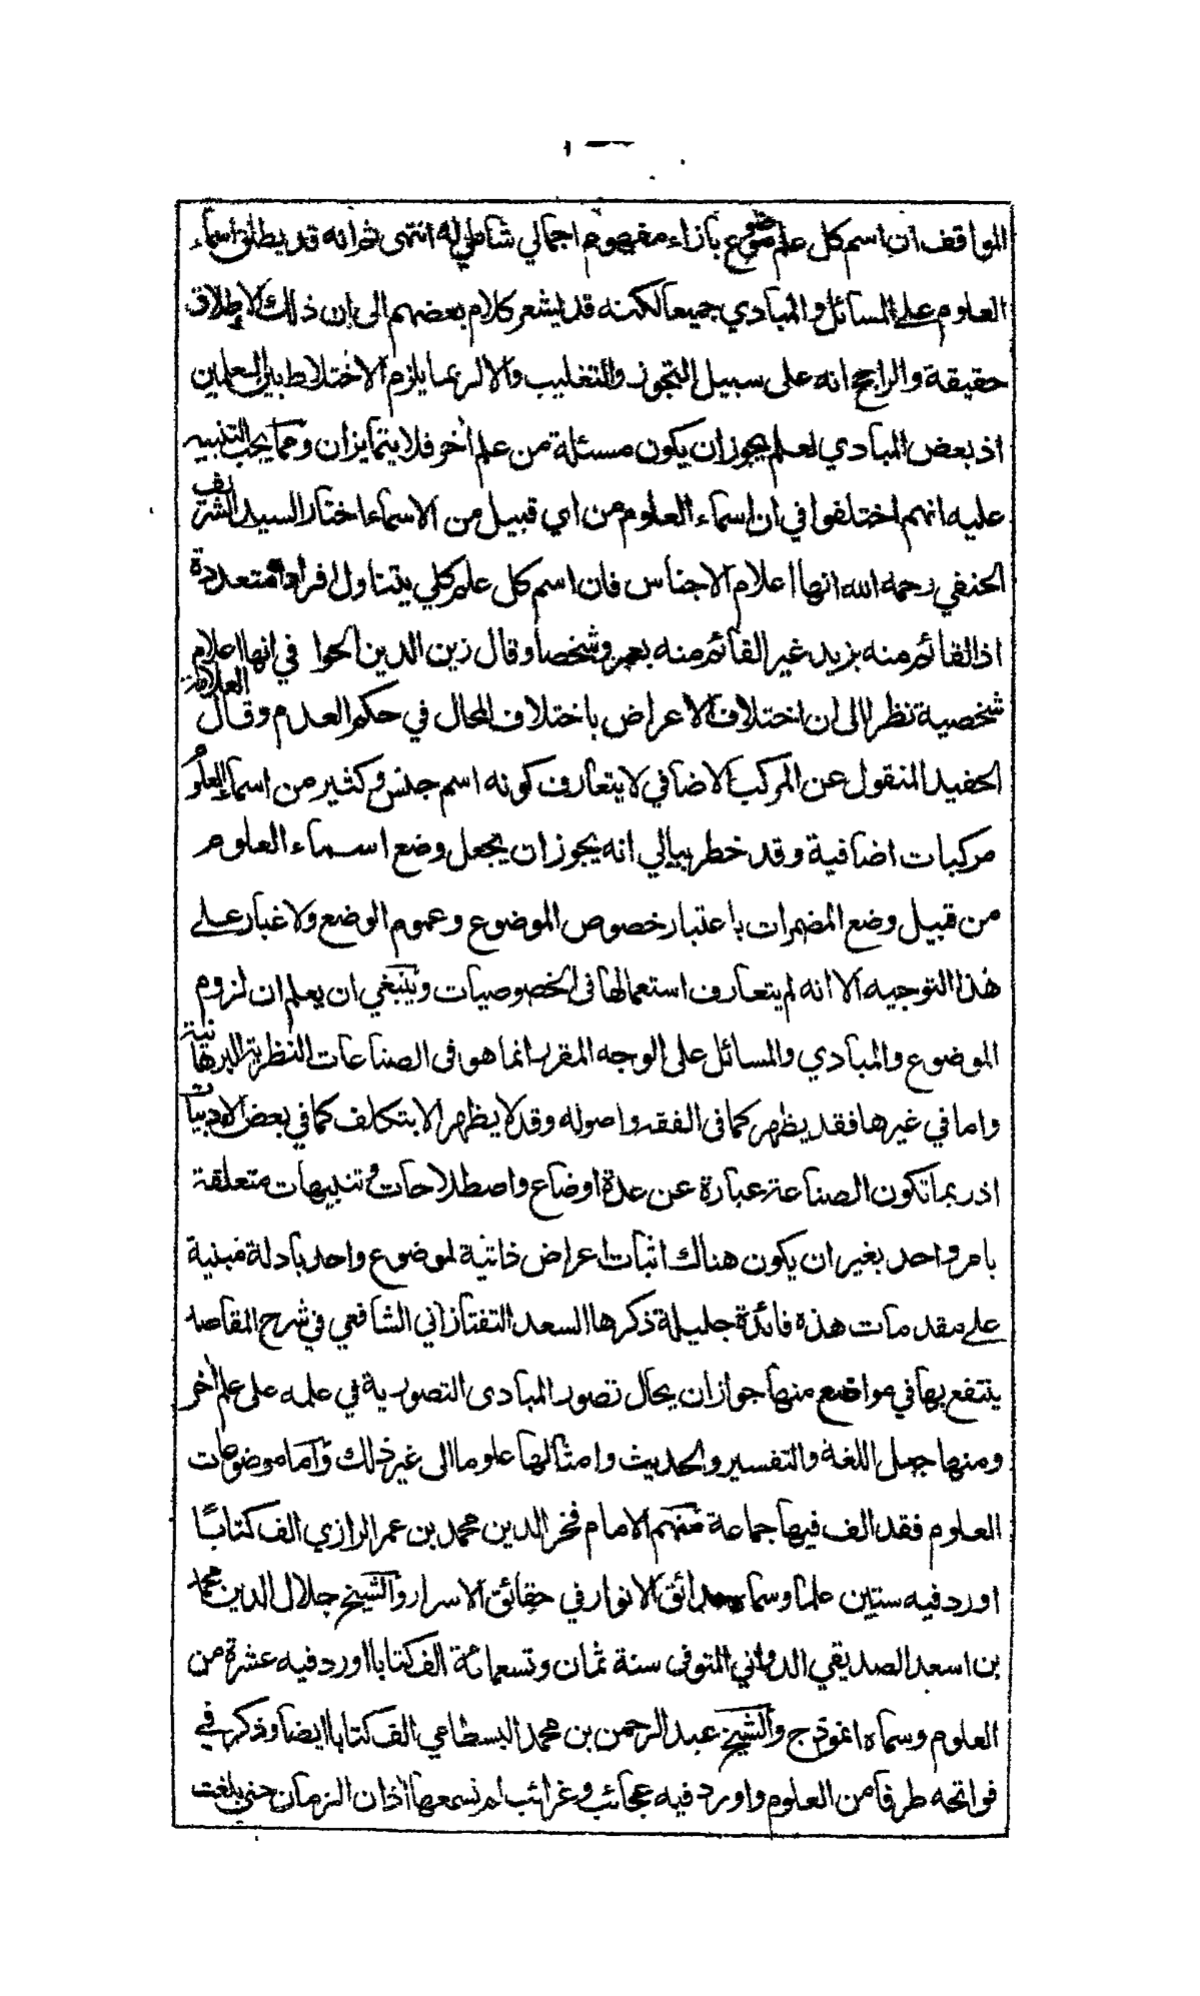 المواقف ان اسم كل علم موضوع بازاء مفهوم اجمالي شامل له انتهى ثم انه قد يطلق اسماء
العلوم على المسائل والمبادي جميعا لكنه قد يشعر كلام بعضهم الى ان ذلك الاطلاق
حقيقة والراجح انه على سبيل التجوز والتغليب والا لربما يلزم الاختلاط بين العلمين
اذ بعض المبادي لعلم يجوز ان يكون مسئلة من علم اخر فلا يتمايزان ومما يجب التنبيه
عليه انهم اختلفوا في ان اسماء العلوم من اي قبيل من الاسماء اختار السيد الشريف
الحنفي رحمه الله انها اعلام الاجناس فان اسم كل علم كلي يتناول افرادا متعددة
اذ القائم منه بزيد غير القائم منه بعمرو شخصا وقال زين الدين الحوا في انها اعلام
شخصية نظرا الى ان اختلاف الاعراض باختلاف المحال في حكم العدم وقال العلامة
الحفيد المنقول عن المركب الاضافي لا يتعارف كونه اسم جنس وكثير من اسماء العلوم
مركبات اضافية وقد خطر ببالي انه يجوز ان يجعل وضع اسماء العلوم
من قبيل وضع المضمرات باعتبار خصوص الموضوع وعموم الوضع ولا غبار على
هذا التوجيه الا انه لم يتعارف استعمالها في الخصوصيات وينبغي ان يعلم ان لزوم
الموضوع والمبادي والمسائل على الوجه المقرر انما هو في الصناعات النظرية البرهانية
واما في غيرها فقد يظهر كما في الفقه واصوله وقد لا يظهر الا بتكلف كما في بعض الادبيات
اذ ربما تكون الصناعة عبارة عن عدة اوضاع واصطلاحات وتنبيهات متعلقة
بامر واحد بغير ان يكون هناك اثبات اعراض ذاتية لموضوع واحد بادلة مبنية
على مقدمات هذه فائدة جليلة ذكرها السعد التفتازاني الشافعي في شرح المقاصد
ينتفع بها في مواضع منها جواز ان يحال تصور المبادى التصورية في علمه على علم اخر
ومنها جعل اللغة والتفسير والحديث وامثالها علوما الى غير ذلك وآما موضوعات
العلوم فقد الف فيها جماعة منهم الامام فخر الدين محمد بن عمر الرازي الف كتابًا
اورد فيه ستين علما وسماه حدائق الانوار في حقائق الاسرار والشيخ جلال الدين محمد
بن اسعد الصديقي الدواني المتوفى سنة ثمان وتسعمائة الف كتابا اورد فيه عشرة من
العلوم وسماه انموذج والشيخ عبد الرحمن بن محمد البسطامي الف كتابا ايضا وذكر في
فواتحه طرفا من العلوم واورد فيه عجائب وغرائب لم تسمعها اذان الزمان حتى بلغت